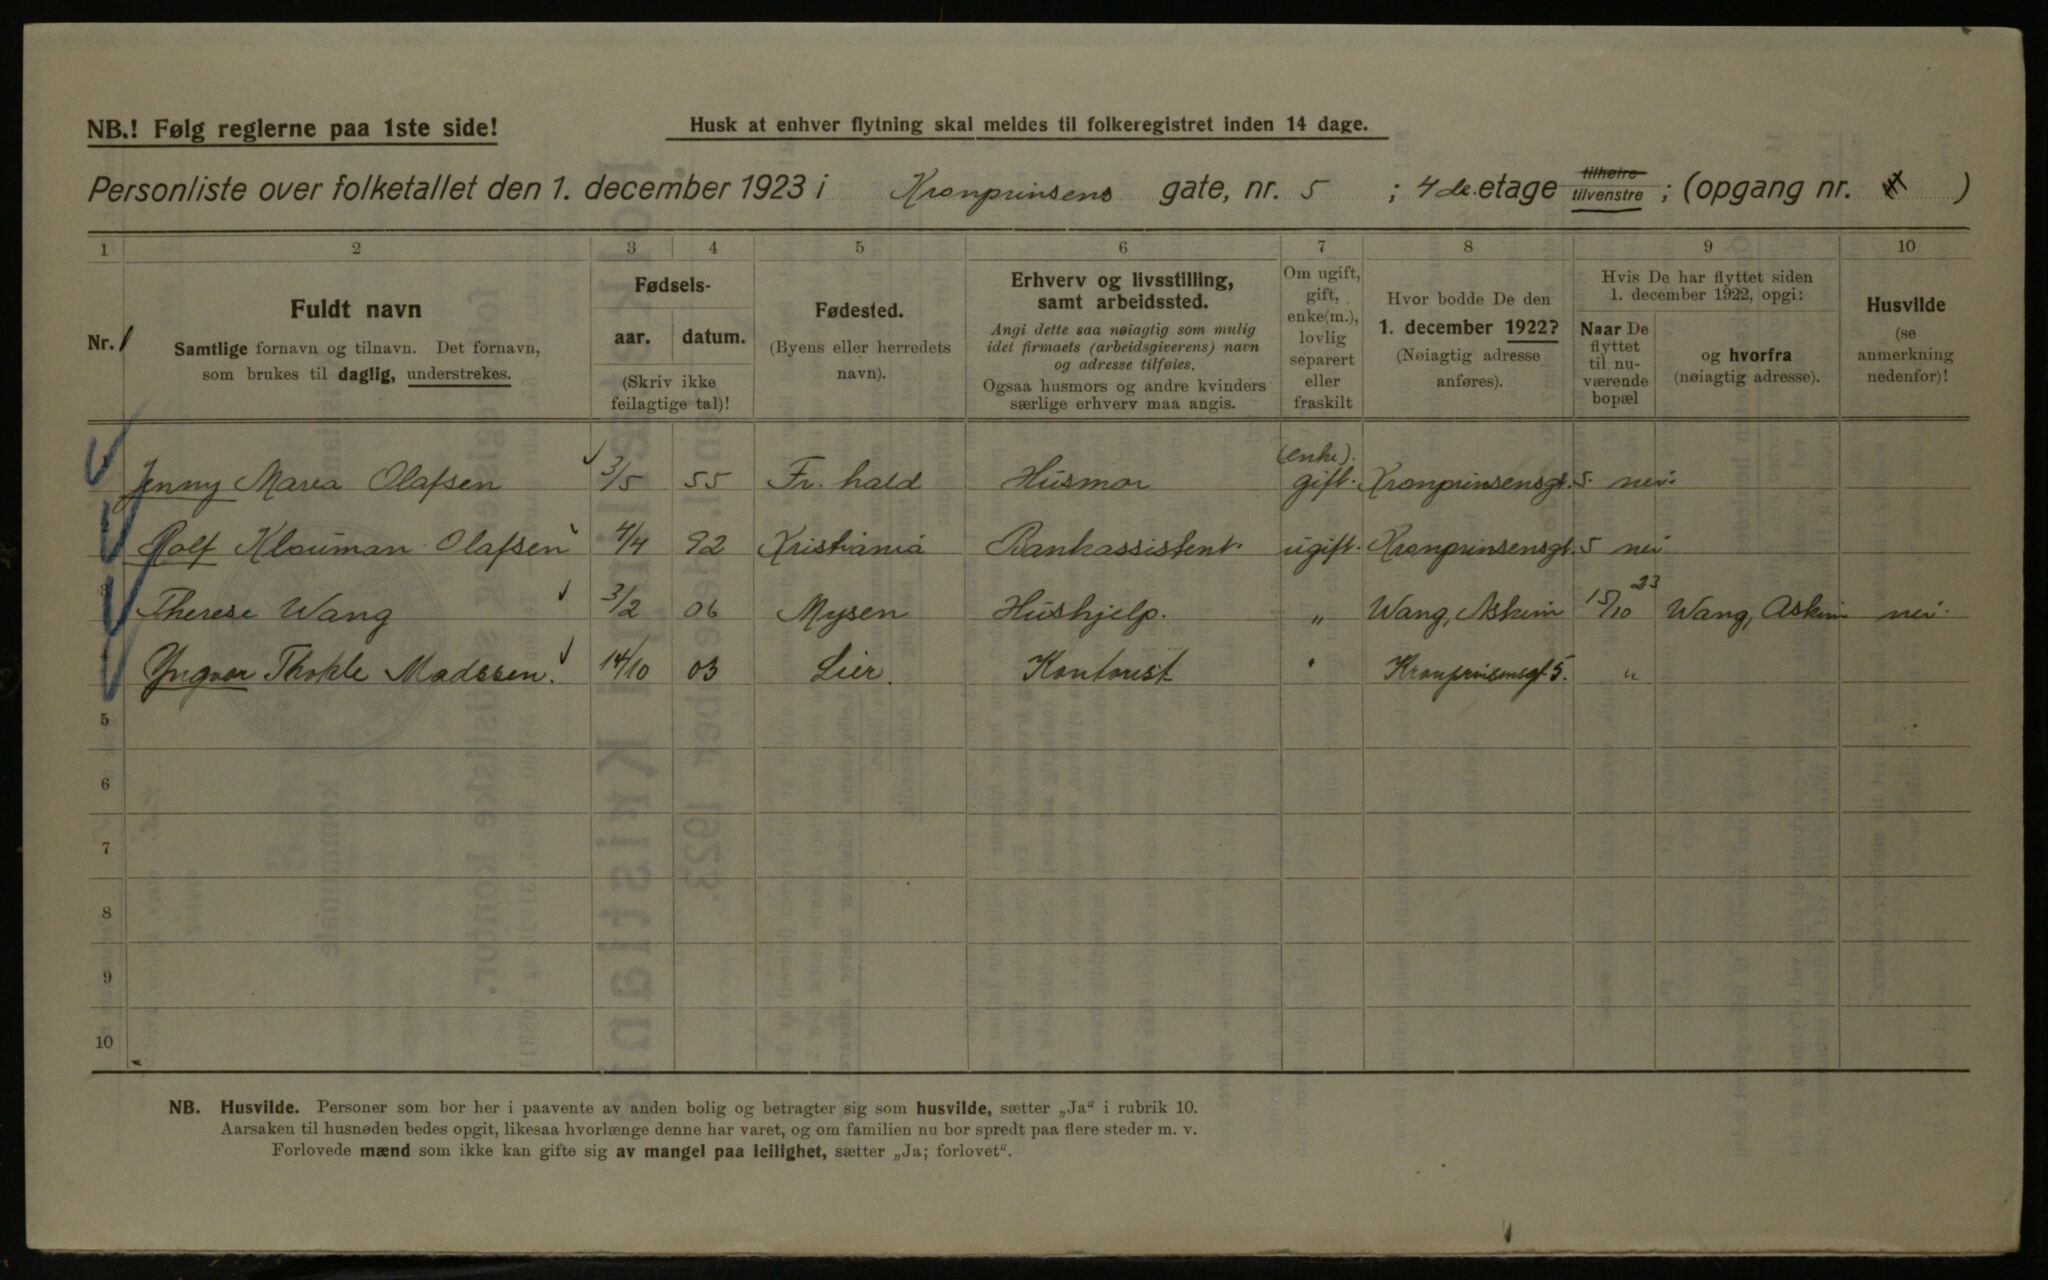 NB.! Følg reglerne paa 1ste side!
Husk at enhver flytning skal meldes til folkeregistret inden 14 dage.
Personliste over folketallet den 1. december 1923 i Kronprinsens gate, nr. 5 ; 4de etage tilhøire tilvenstre ; (opgang nr. )
1 2 3 4 5 6 7 8 9 10
Nr.
Fuldt navn
Samtlige fornavn og tilnavn. Det fornavn,
som brukes til daglig, understrekes.
Fødsels-
aar. datum.
(Skriv ikke
feilagtige tal)!
Fødested.
(Byens eller herredets
navn).
Erhverv og livsstilling,
samt arbeidssted.
Angi dette saa nøiagtig som mulig
idet firmaets (arbeidsgiverens) navn
og adresse tilføies.
Ogsaa husmors og andre kvinders
særlige erhverv maa angis.
Om ugift,
gift,
enke(m.),
lovlig
separert
eller
fraskilt
Hvor bodde De den
1. december 1922?
(Nøiagtig adresse
anføres).
Hvis De har flyttet siden
1. december 1922, opgi:
Naar De
flyttet
til nu-
værende
bopæl
og hvorfra
(nøiagtig adresse).
Husvilde
(se
anmerkning
nedenfor)!
Jenny Marea Olafsen 3/5 55 Fr. hald Husmor (enke). gift. Kronprinsensgt. 5. nei.
Rolf Klouman Olafsen 4/4 92 Kristiania Bankassistent. ugift. Kronprinsensgt. 5 nei
3 Therese Wang 3/2 06 Mysen Hushjelp. " Wang, Askim 15/10 23 Wang, Askim nei.
4 Yngvar Madssen. 14/10 03 Lier. Kontorist " Kronprinsensgt 5. "
5
6
7
8
9
10
NB. Husvilde. Personer som bor her i paavente av anden bolig og betragter sig som husvilde, sætter „Ja“ i rubrik 10.
Aarsaken til husnøden bedes opgit, likesaa hvorlænge denne har varet, og om familien nu bor spredt paa flere steder m. v.
Forlovede mænd som ikke kan gifte sig av mangel paa leilighet, sætter „Ja; forlovet“.